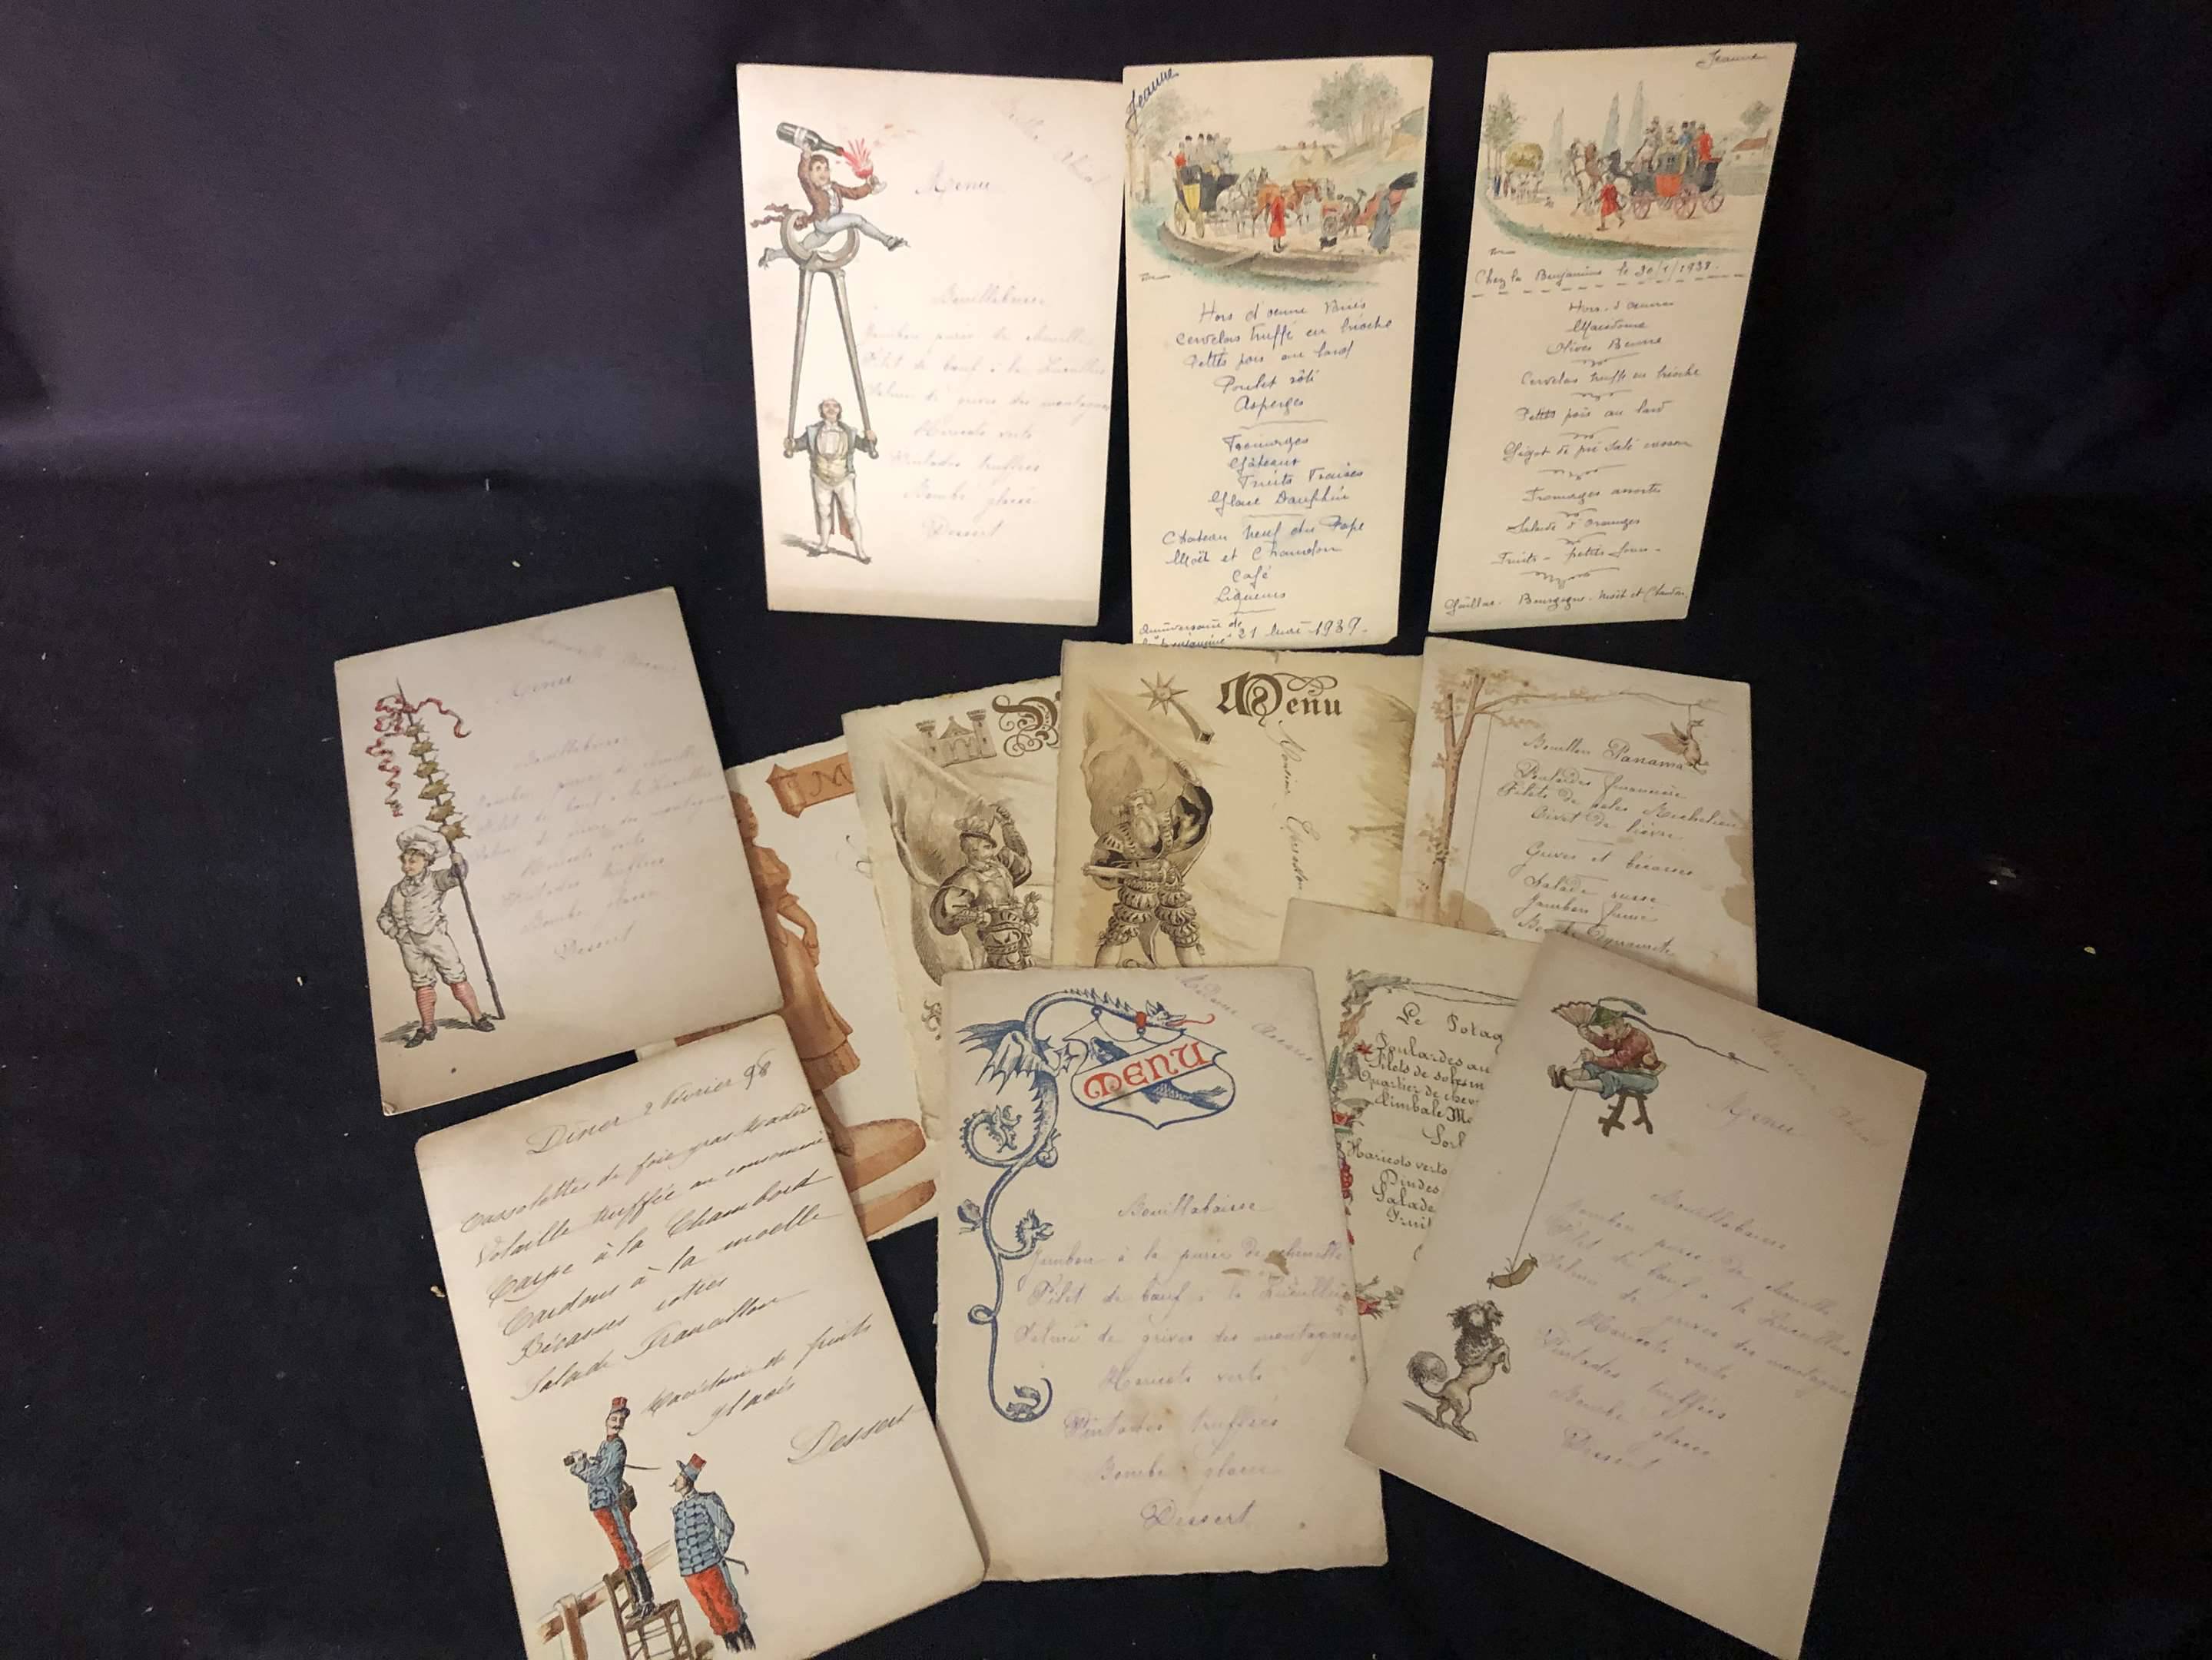 Menu
Bouillabaisse
Jambon purée de
Filet de bœuf à la Lucullus
Salmis de grives des montagnes
Haricots verts
Pintades truffées
Bombe glacée
Dessert
Jeanne
Hors d'œuvre Variés
Cervelas truffé en brioche
Petits pois au lard
Poulet rôti
Asperges
Fromages
Gâteaux
Fruits Fraises
Glace Dauphin
Chateau neuf du Pape
Moët et Chandon
Café
Liqueurs
Anniversaire de
21 1939.
Jeanne
Chez la Benjamine le 30/1/1938.
Hors-d'œuvres
Macédoine
Olives Beurre
Cervelas truffé en brioche
Petits pois au lard
Gigot de pré salé
Fromages assortis
Salade d'oranges
Fruits - petits fours -
Gaillac. Bourgogne. Moët et Chandon
Menu
Bouillabaisse
Jambon purée de
Filet de bœuf à la Lucullus
Salmis de grives des montagnes
Haricots verts
Pintades truffées
Bombe glacée
Dessert
M
Menu
Monsieur
Bouillon Panama
Poulardes financière
Filets de soles Richelieu
Civet de lièvre
Grives et bécasses
Salade russe
Jambon fumé
Dîner 2 Février 98
Cassolettes de foie gras
Volaille truffée au consommé
Carpe à la Chambord
Cardons à la moelle
Bécasses roties
Salade Francillon
Macédoine de fruits
glacés
Dessert
Madame
MENU
Bouillabaisse
Jambon à la purée de
Filet de bœuf à la Lucullus
Salmis de grives des montagnes
Haricots verts
Pintades truffées
Bombe glacée
Dessert
Le Potag
Poulardes au
Filets de soles m
Quartier de chev
Timbale M
Sorb
Haricots verts
Dindes
Salade
Fruit
Monsieur
Menu
Bouillabaisse
Jambon purée de
Filet de bœuf à la Lucullus
Salmis de grives des montagnes
Haricots verts
Pintades truffées
Bombe glacée
Dessert